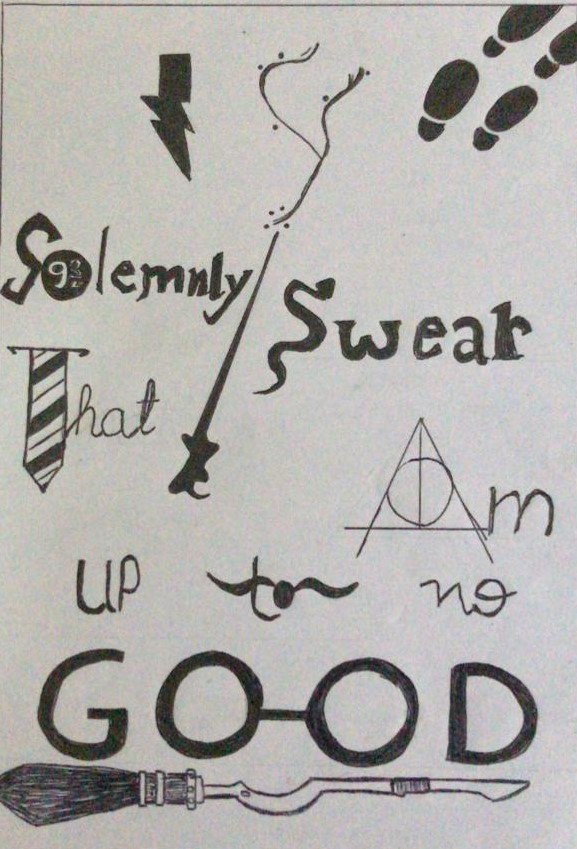 Solemnly
9¾
Swear
That
Am
UP to no
GOOD